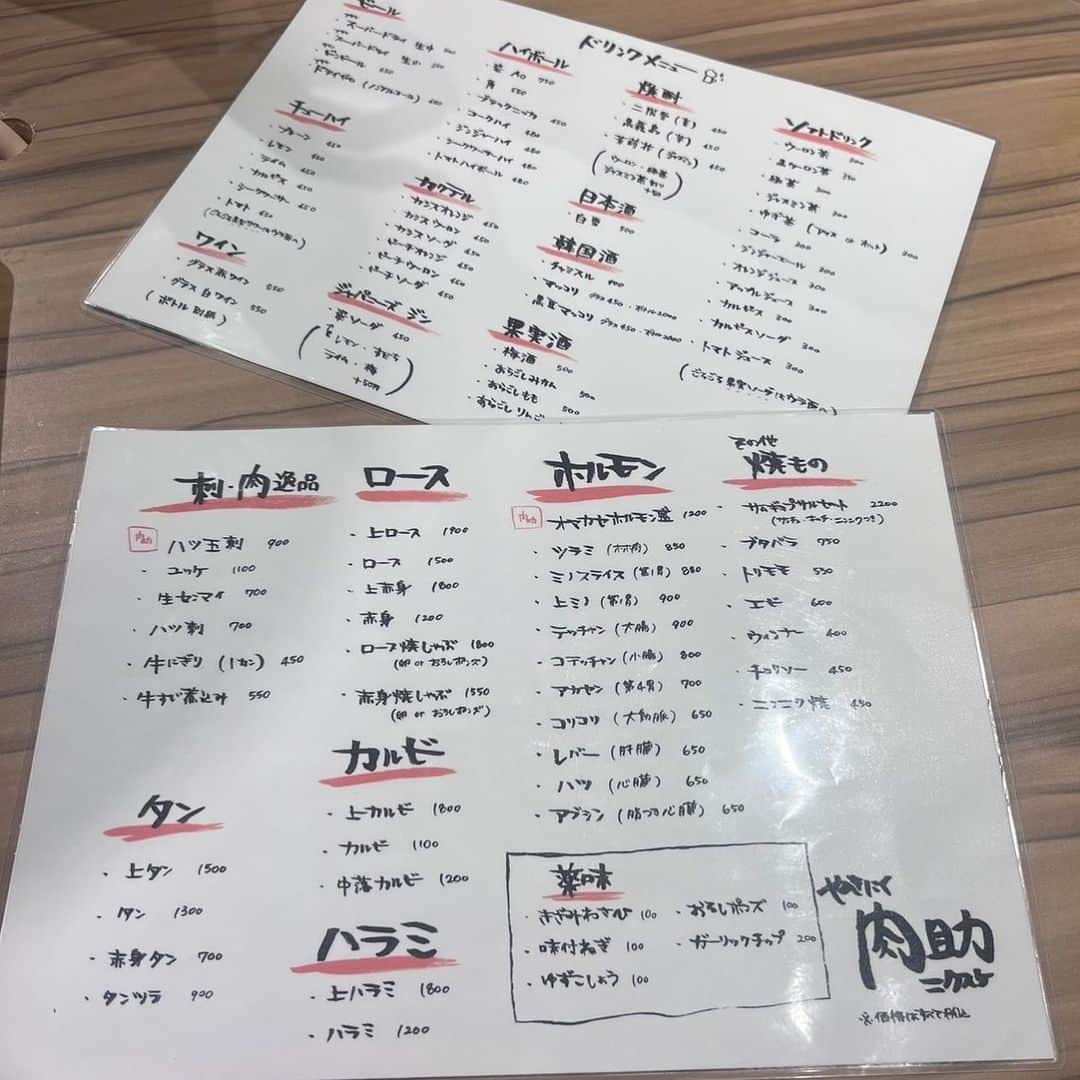 ドリンクメニュー
ビール
・スーパードライ 生中
・スーパードライ 生小
・ビンビール
・ドライゼロ (ノンアルコール)
チューハイ
・プレーン
・レモン 450
・ライム 450
・カルピス 450
・シークワーサー 450
・トマト 450
ワイン
・グラス赤ワイン 550
・グラス白ワイン 550
(ボトル別紙)
ハイボール
・角 550
・ブラックニッカ 450
・コークハイ 480
・ジンジャーハイ 480
・シークワーサーハイ 480
・トマトハイボール 480
カクテル
・カシスオレンジ 450
・カシスウーロン 450
・カシスソーダ 450
・ピーチオレンジ 450
・ピーチウーロン 450
・ピーチソーダ 450
ジャパニーズジン
・翠ソーダ 450
(レモン・すだち
ライム・梅
+50円)
焼酎
・二階堂 (麦) 450
・黒霧島 (芋) 450
(ウーロン・緑茶
ジャスミン茶割り
+50)
日本酒
500
韓国酒
・チャミスル
・マッコリ グラス450・ボトル2000
・黒豆マッコリ グラス450・
果実酒
・梅酒 500
・あらごしみかん 500
・あらごしもも 500
・あらごしりんご
ソフトドリンク
・ウーロン茶 300
・黒ウーロン茶
・緑茶 300
・ジャスミン茶 300
・ゆず茶 (アイス or ホット) 300
・コーラ 300
・ジンジャーエール 300
・オレンジジュース 300
・アップルジュース 300
・カルピス 300
・カルピスソーダ 300
・トマトジュース 300
(ごろごろ果実ソーダはウラ面へ)
刺・肉逸品
肉助
ハツ玉刺 900
・ユッケ 1100
・生センマイ 700
・ハツ刺 700
・牛にぎり (1カン) 450
・牛すじ煮込み 550
タン
・上タン 1500
・タン 1300
・赤身タン 700
・タンツラ 900
ロース
・上ロース 1900
・ロース 1500
・上赤身 1800
・赤身 1200
・ロース焼しゃぶ 1800
(卵 or おろしポンズ)
・赤身焼しゃぶ 1550
(卵 or おろしポンズ)
カルビ
・上カルビ 1800
・カルビ 1100
・中落カルビ 1200
ハラミ
・上ハラミ 1800
・ハラミ 1200
ホルモン
肉助
オマカセホルモン盛 1200
・ツラミ (ホホ肉) 850
・ミノスライス (第1胃) 880
・上ミノ (第1胃) 900
・テッチャン (大腸) 900
・コテッチャン (小腸) 800
・アカセン (第4胃) 700
・コリコリ (大動脈) 650
・レバー (肝臓) 650
・ハツ (心臓) 650
・アブシン (脂つき心臓) 650
その他
焼もの
・サムギョプサルセット 2200
(サンチュ・キムチ・ニンニクつき)
・ブタバラ 750
・トリモモ 550
・エビ 600
・ウィンナー 400
・チョリソー 450
・ニンニク焼 450
薬味
・きざみわさび 100
・味付ねぎ 100
・ゆずこしょう 100
・おろしポンズ 100
・ガーリックチップ 200
やきにく
肉助
ニクスケ
※価格はすべて税込